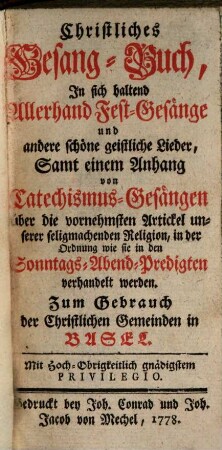 Christliches
Gesang-Buch,
In sich haltend
Allerhand Fest-Gesänge
und
andere schöne geistliche Lieder,
Samt einem Anhang
von
Catechismus-Gesängen
über die vornehmsten Artickel un-
serer seligmachenden Religion, in der
Ordnung wie sie in den
Sonntags-Abend-Predigten
verhandelt werden.
Zum Gebrauch
der Christlichen Gemeinden in
BASEL.
Mit Hoch-Obrigkeitlich gnädigstem
PRIVILEGIO.
Gedruckt bey Joh. Conrad und Joh.
Jacob von Mechel, 1778.